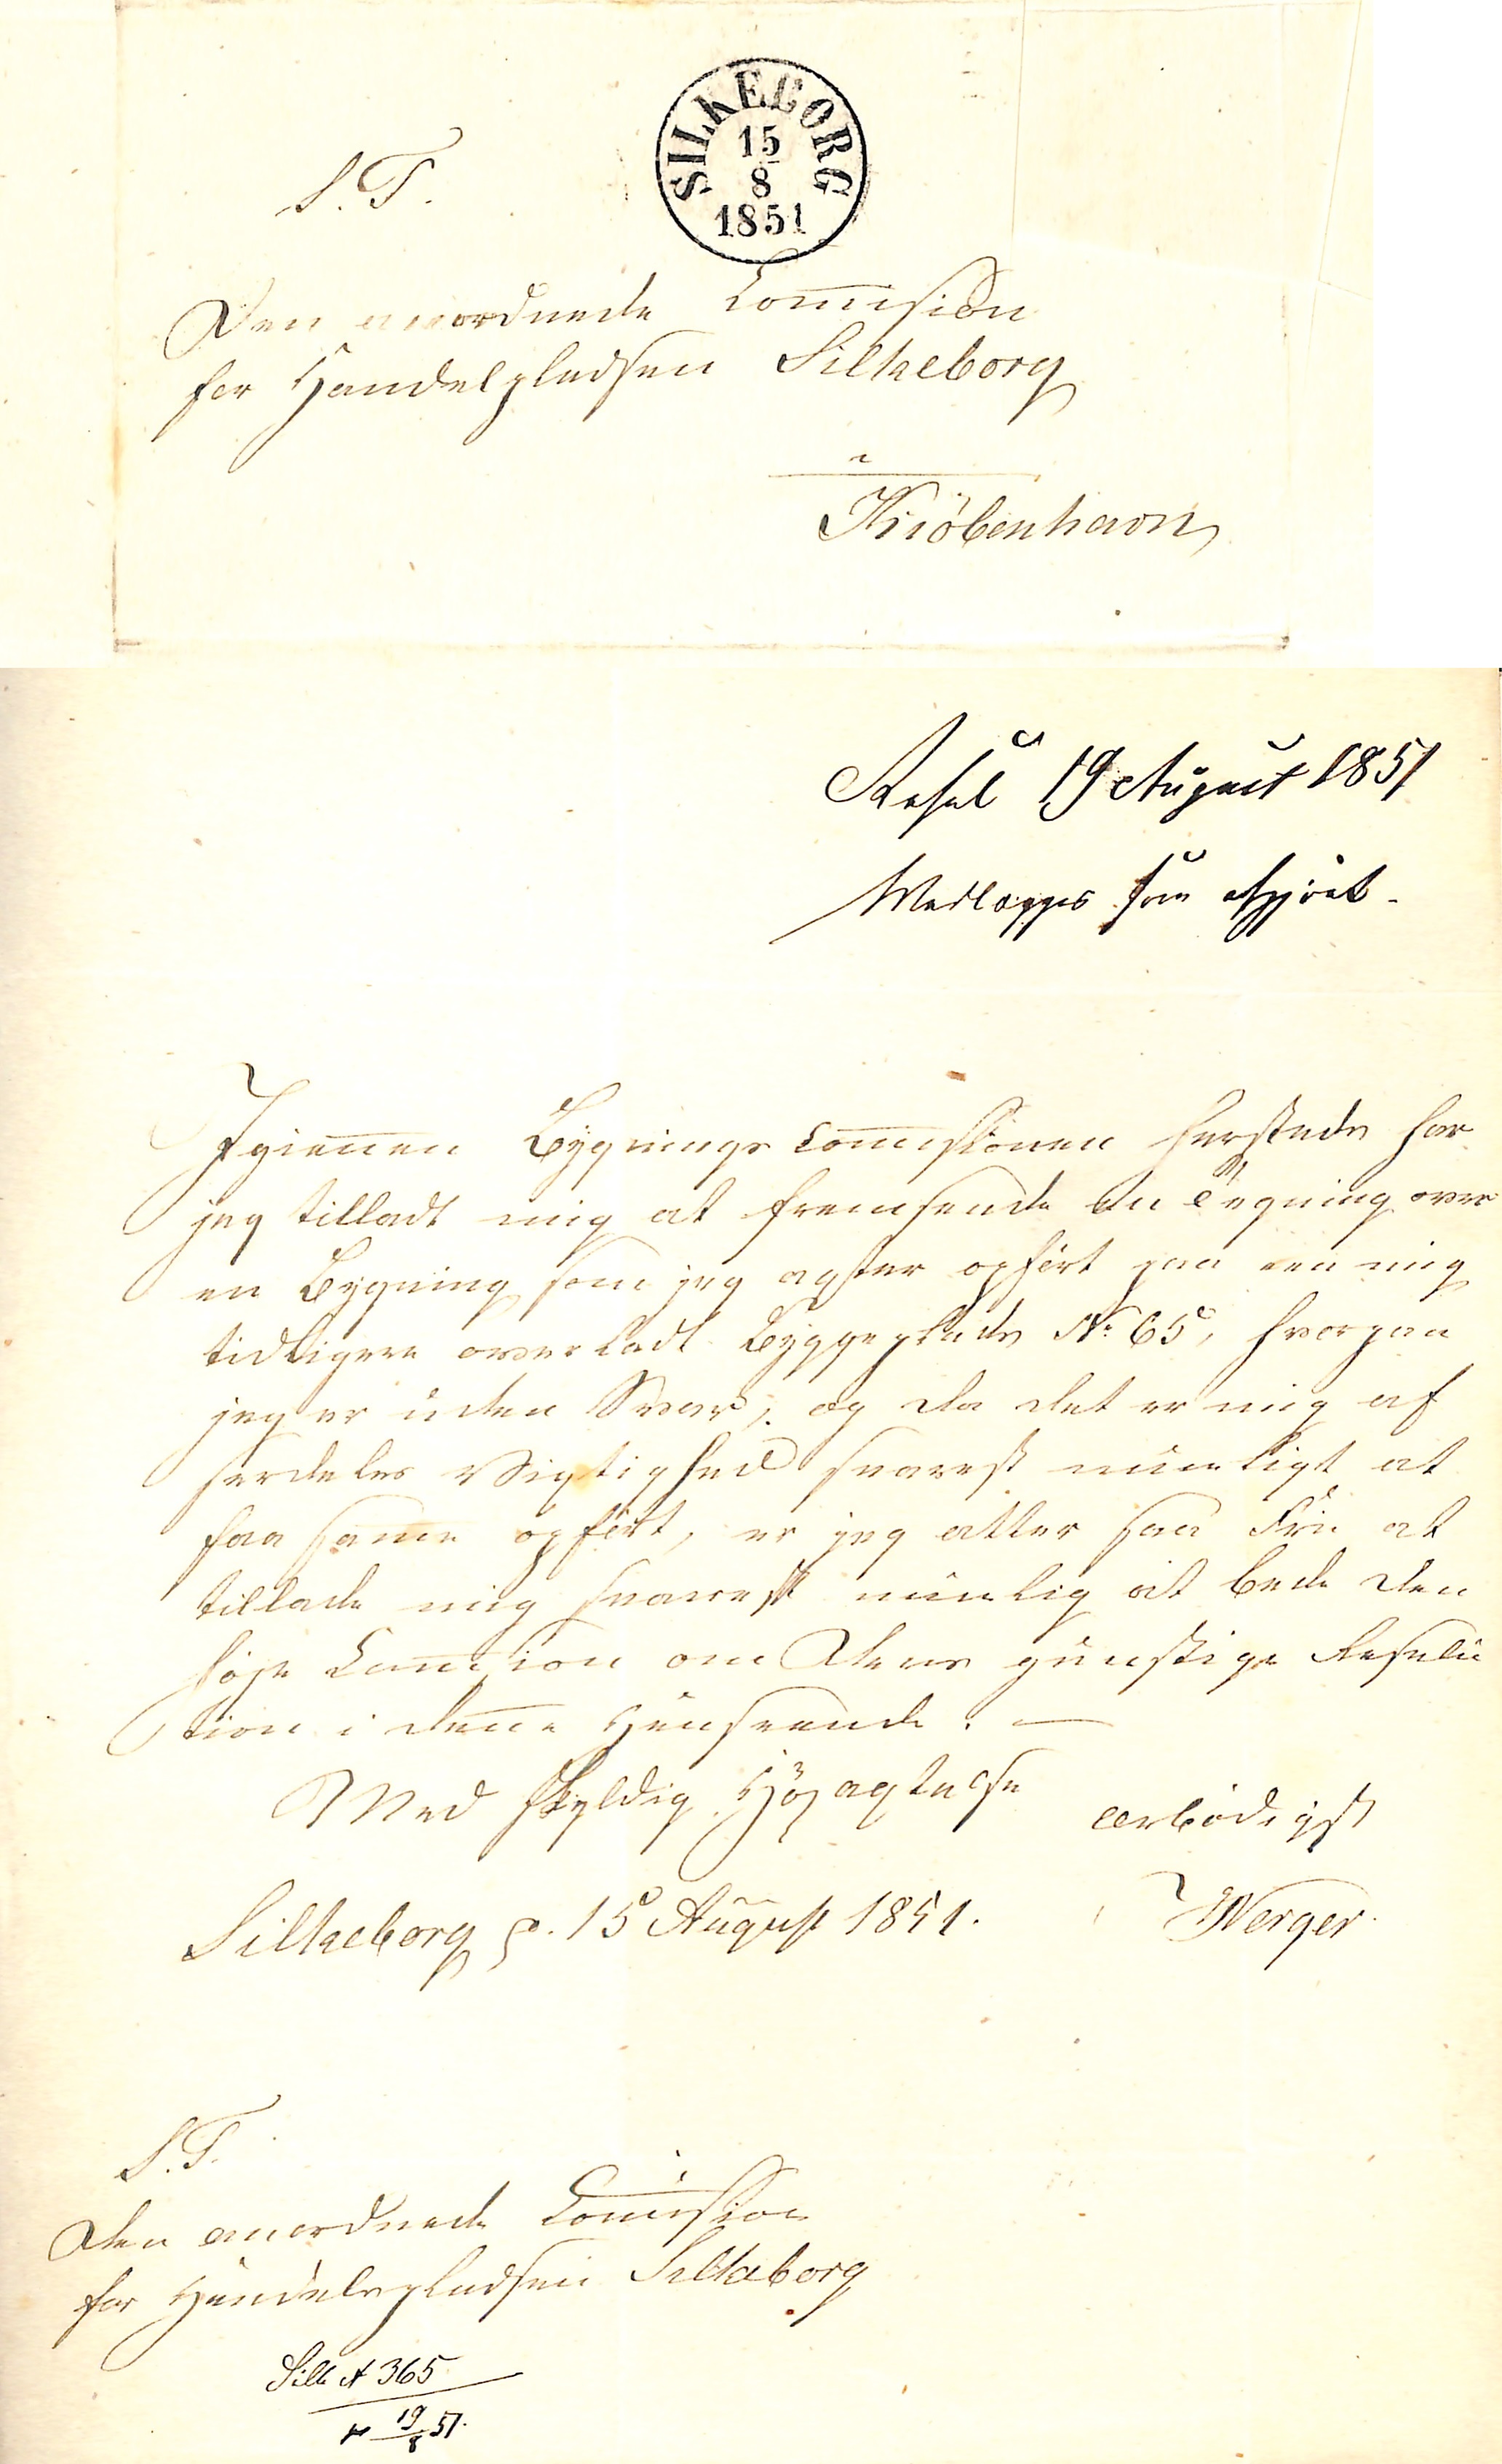 SILKEBORG
15
8
1851
S. T.
Den anordnede Com̅ision
for Handelspladsen Silkeborg
i
Kiöbenhavn
Resol 19 August 1851
Medlægges som afgjort.
Igiennem Bygnings Com̅issionen herstede har
jeg tilladt mig at fremsende en Tegning over
en Bygning som jeg agter opført paa een mig
tidligere overladt Byggeplads No 65, hvorpaa
jeg er uden Svar; og da det er mig af
særdeles Vigtighed snarest mueligt at
faa sam̅e opført, er jeg atter saa frie at
tillade mig snarest muelig at bede den
høje Com̅ision om Dens gunstige Resolu
tion i den̅e Henseende. —
Med skyldig Højagtelse
ærbødigst
Silkeborg d. 15 August 1851.
Werger.
S. T.
Den anordnede Com̅ission
for Handelspladsen Silkeborg
Silk A 365
19/8 51.